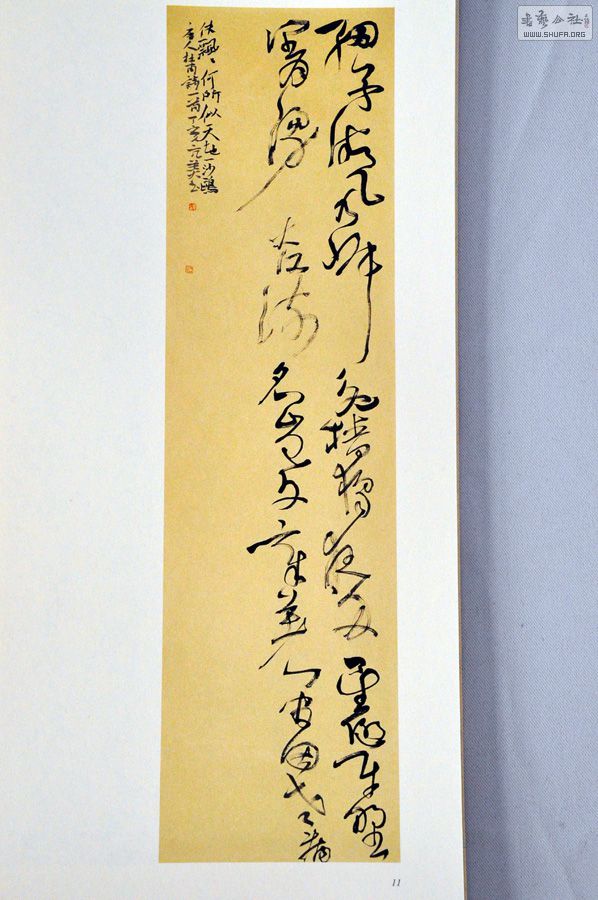 書藝公社
WWW.SHUFA.ORG
細草微风岸危檣獨夜舟星垂平野
闊月湧大江流名豈文章著官因老病
休飄〻何所似天地一沙鷗
唐人杜甫詩一首丁亥书
11